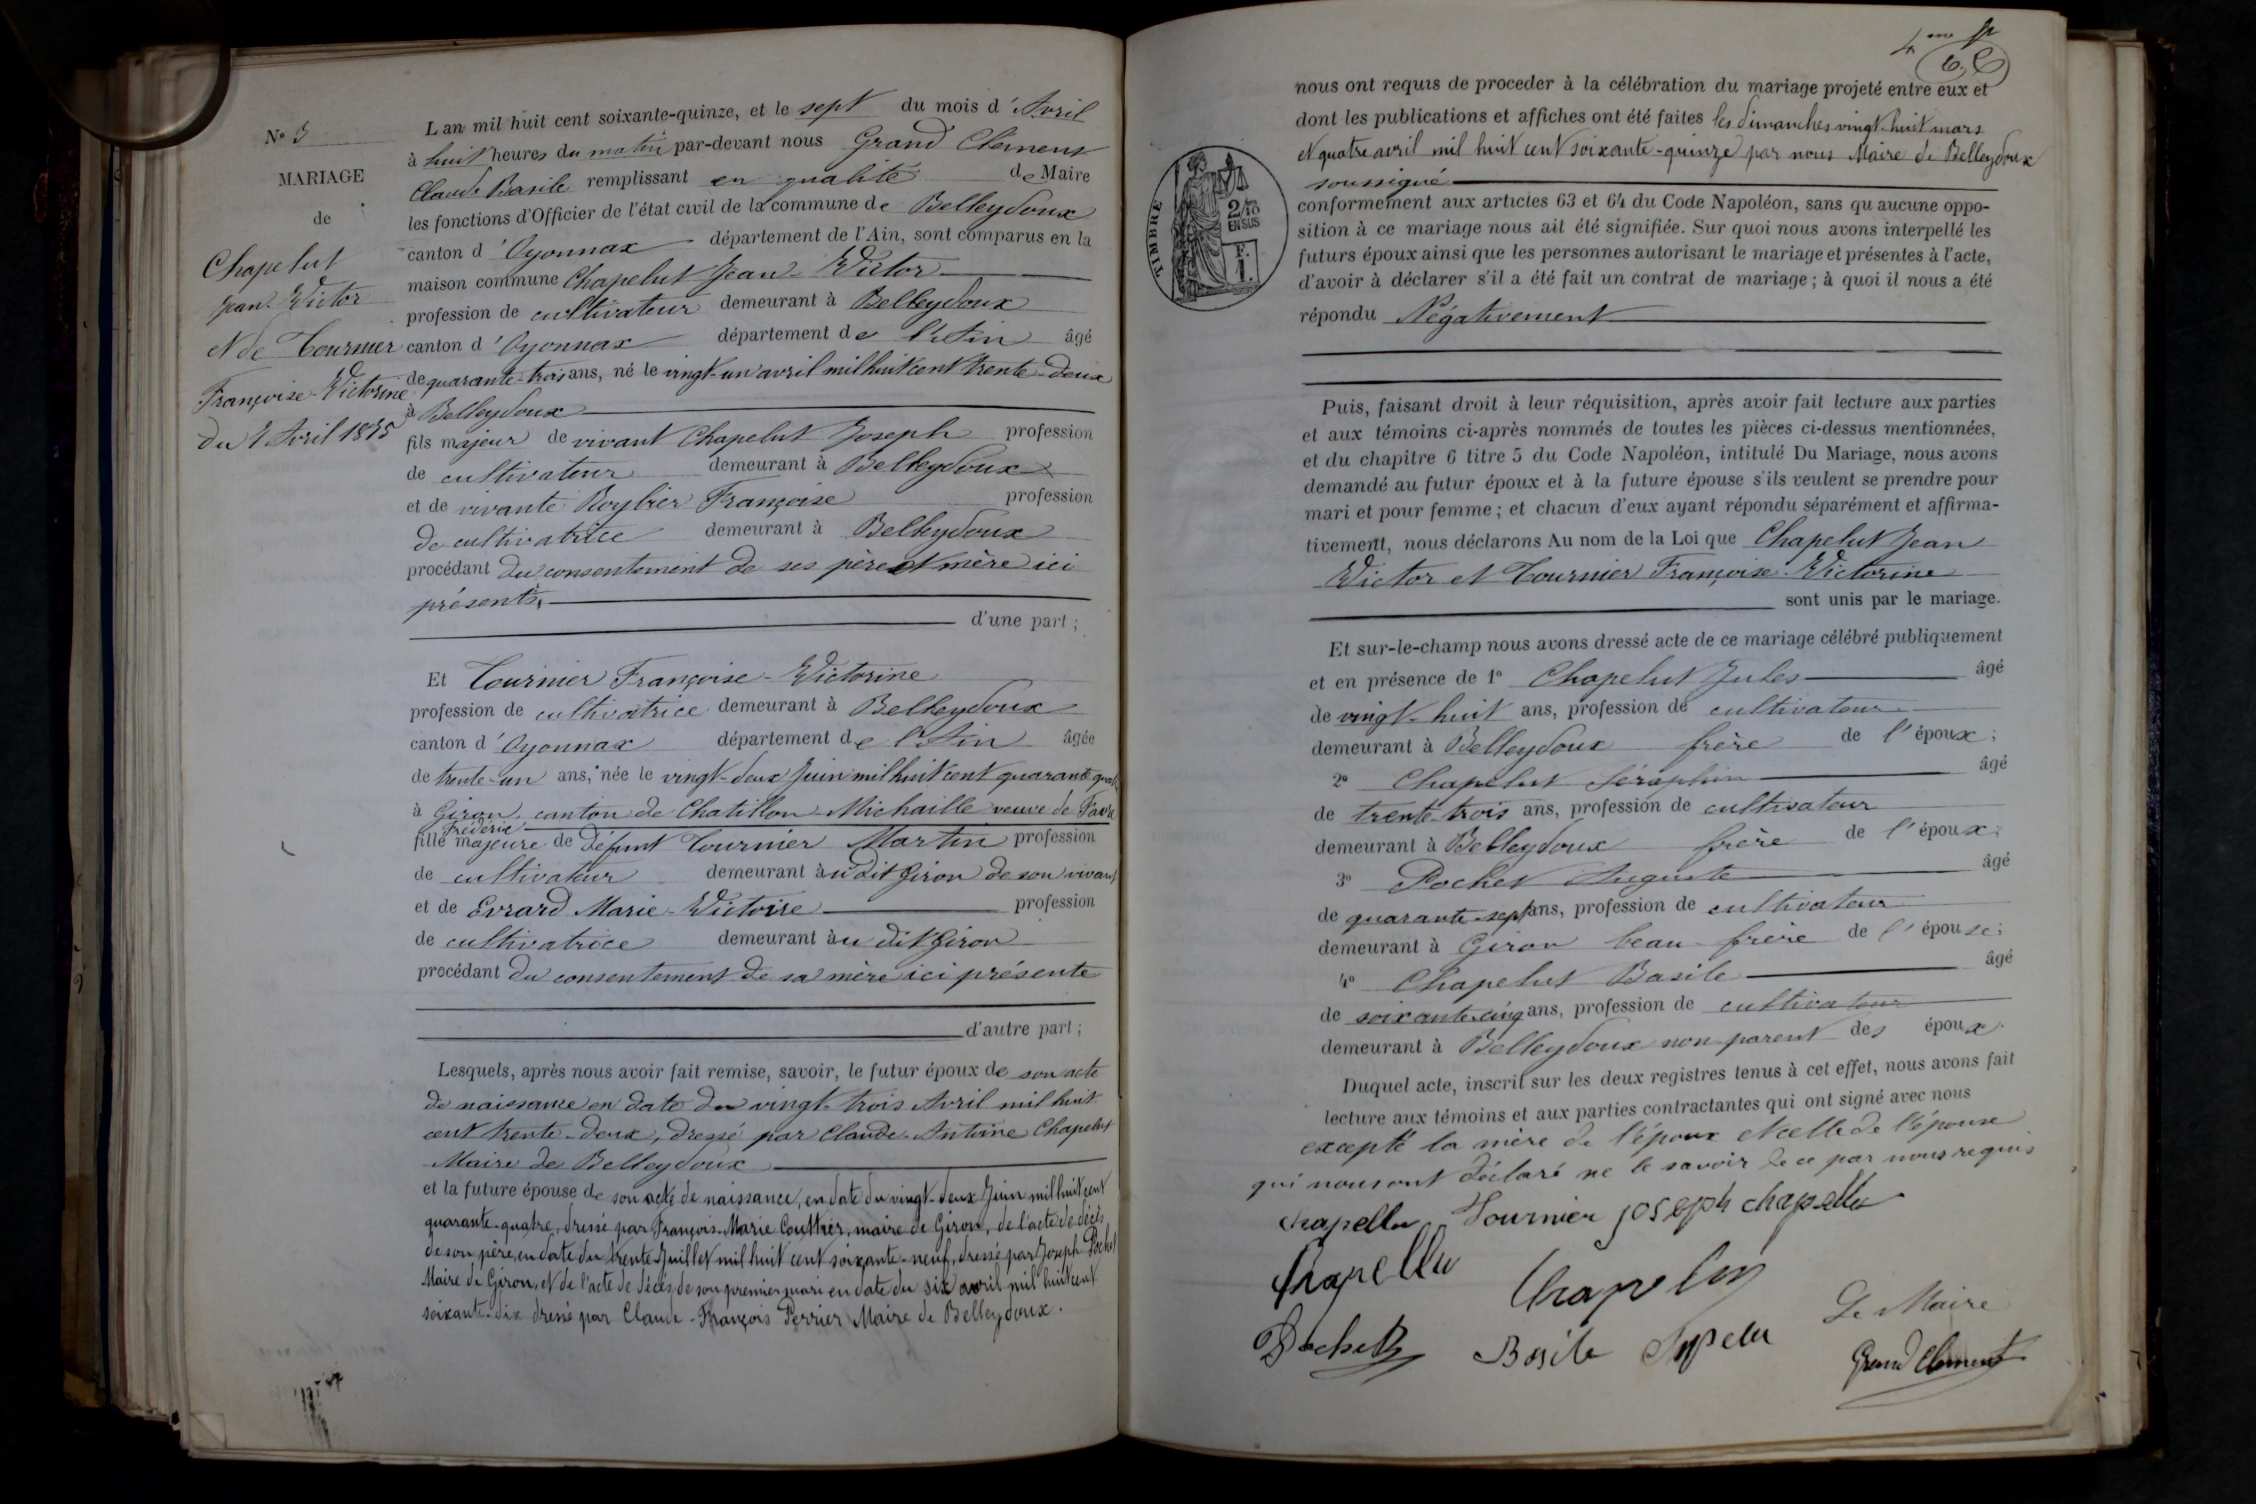 N° 3
MARIAGE
de
Chapelut
Jean-Victor
et de Tournier
Françoise-Victorine
du 7 Avril 1875
L'an mil huit cent soixante-quinze, et le sept du mois d'Avril
à huit heures du matin par-devant nous Grand Clément
Claude Basile remplissant en qualité de Maire
les fonctions d'Officier de l'état civil de la commune de Belleydoux
canton d'Oyonnax département de l'Ain, sont comparus en la
maison commune Chapelut Jean Victor
profession de cultivateur demeurant à Belleydoux
canton d'Oyonnax département de l'Ain âgé
de quarante-trois ans, né le vingt-un avril mil huit cent trente-deux
à Belleydoux
fils majeur de vivant Chapelut Joseph profession
de cultivateur demeurant à Belleydoux
et de vivante Roybier Françoise profession
de cultivatrice demeurant à Belleydoux
procédant du consentement de ses père et mère ici
présents,
d'une part ;
Et Tournier Françoise-Victorine
profession de cultivatrice demeurant à Belleydoux
canton d'Oyonnax département de l'Ain âgée
de trente-un ans, née le vingt-deux Juin mil huit cent quarante quatre
à Giron, canton de Chatillon-Michaille veuve de Favre
Frédéric
fille majeure de défunt Tournier Martin profession
de cultivateur demeurant au dit Giron de son vivant
et de Evrard Marie-Victoire profession
de cultivatrice demeurant au dit Giron
procédant du consentement de sa mère ici présente
d'autre part ;
Lesquels, après nous avoir fait remise, savoir, le futur époux de son acte
de naissance en date du vingt-trois Avril mil huit
cent trente-deux, dressé par Claude-Antoine Chapelut
Maire de Belleydoux
et la future épouse de son acte de naissance, en date du vingt-deux Juin mil huit cent
quarante-quatre, dressé par François-Marie Couttier, maire de Giron, de l'acte de décès
de son père, en date du trente Juillet mil huit cent soixante-neuf, dressé par Joseph Pochet
Maire de Giron, et de l'acte de décès de son premier mari en date du six avril mil huit cent
soixante-dix dressé par Claude-François Perrier Maire de Belleydoux.
4me
nous ont requis de proceder à la célébration du mariage projeté entre eux et
dont les publications et affiches ont été faites les dimanches vingt-huit mars
et quatre avril mil huit cent soixante-quinze par nous Maire de Belleydoux
soussigné
TIMBRE
2/10
EN SUS
F.
1.
conformement aux articles 63 et 64 du Code Napoléon, sans qu aucune oppo-
sition à ce mariage nous ait été signifiée. Sur quoi nous avons interpellé les
futurs époux ainsi que les personnes autorisant le mariage et présentes à l'acte,
d'avoir à déclarer s'il a été fait un contrat de mariage ; à quoi il nous a été
répondu Négativement
Puis, faisant droit à leur réquisition, après avoir fait lecture aux parties
et aux témoins ci-après nommés de toutes les pièces ci-dessus mentionnées,
et du chapitre 6 titre 5 du Code Napoléon, intitulé Du Mariage, nous avons
demandé au futur époux et à la future épouse s'ils veulent se prendre pour
mari et pour femme ; et chacun d'eux ayant répondu séparément et affirma-
tivement, nous déclarons Au nom de la Loi que Chapelut Jean
Victor et Tournier Françoise-Victorine
sont unis par le mariage.
Et sur-le-champ nous avons dressé acte de ce mariage célébré publiquement
et en présence de 1° Chapelut Jules âgé
de vingt-huit ans, profession de cultivateur
demeurant à Belleydoux frère de l'époux ;
2° Chapelut Séraphin âgé
de trente-trois ans, profession de cultivateur
demeurant à Belleydoux frère de l'époux ;
3° Pochet Auguste âgé
de quarante-sept ans, profession de cultivateur
demeurant à Giron beau-frère de l'épouse ;
4° Chapelut Basile âgé
de soixante-cinq ans, profession de cultivateur
demeurant à Belleydoux non parent des époux.
Duquel acte, inscrit sur les deux registres tenus à cet effet, nous avons fait
lecture aux témoins et aux parties contractantes qui ont signé avec nous
excepté la mère de l'époux et celle de l'épouse
qui nous ont déclaré ne le savoir de ce par nous requis
Chapellu Tournier joseph chapellu
Chapellu Chapelu
Pochet Basile
Le Maire
Grand Clement